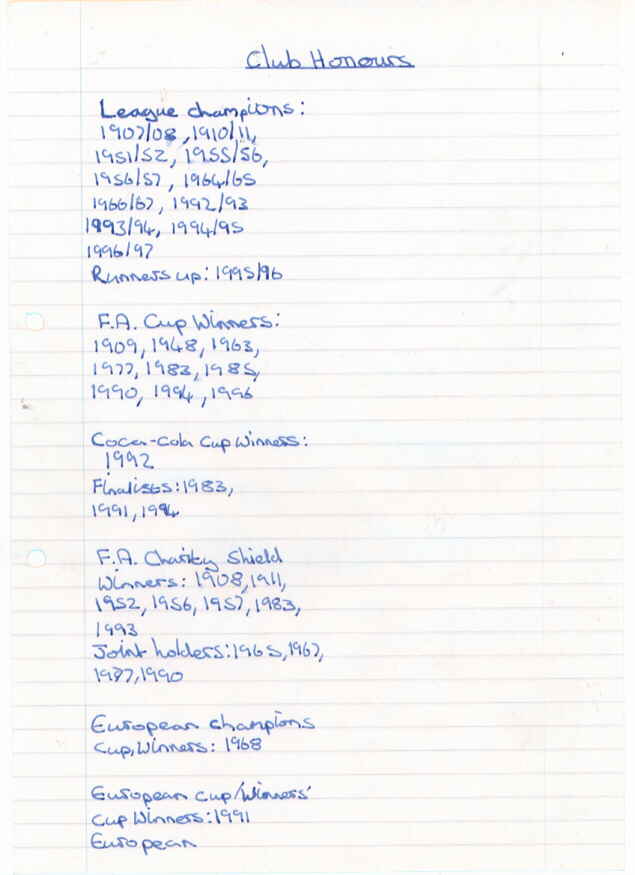 Club Honours
League champions:
1907/08, 1910/11,
1951/52, 1955/56,
1956/57, 1964/65
1966/67, 1992/93
1993/94, 1994/95
1996/97
Runners up: 1995/96
F.A. Cup Winners:
1909, 1948, 1963,
1977, 1983, 1985,
1990, 1994, 1996
Coca-Cola Cup Winners:
1992
Finalists: 1983,
1991, 1994
F.A. Charity Shield
Winners: 1908, 1911,
1952, 1956, 1957, 1983,
1993
Joint holders: 1965, 1967,
1977, 1990
European champions
Cup, Winners: 1968
European Cup/Winners'
Cup Winners: 1991
European